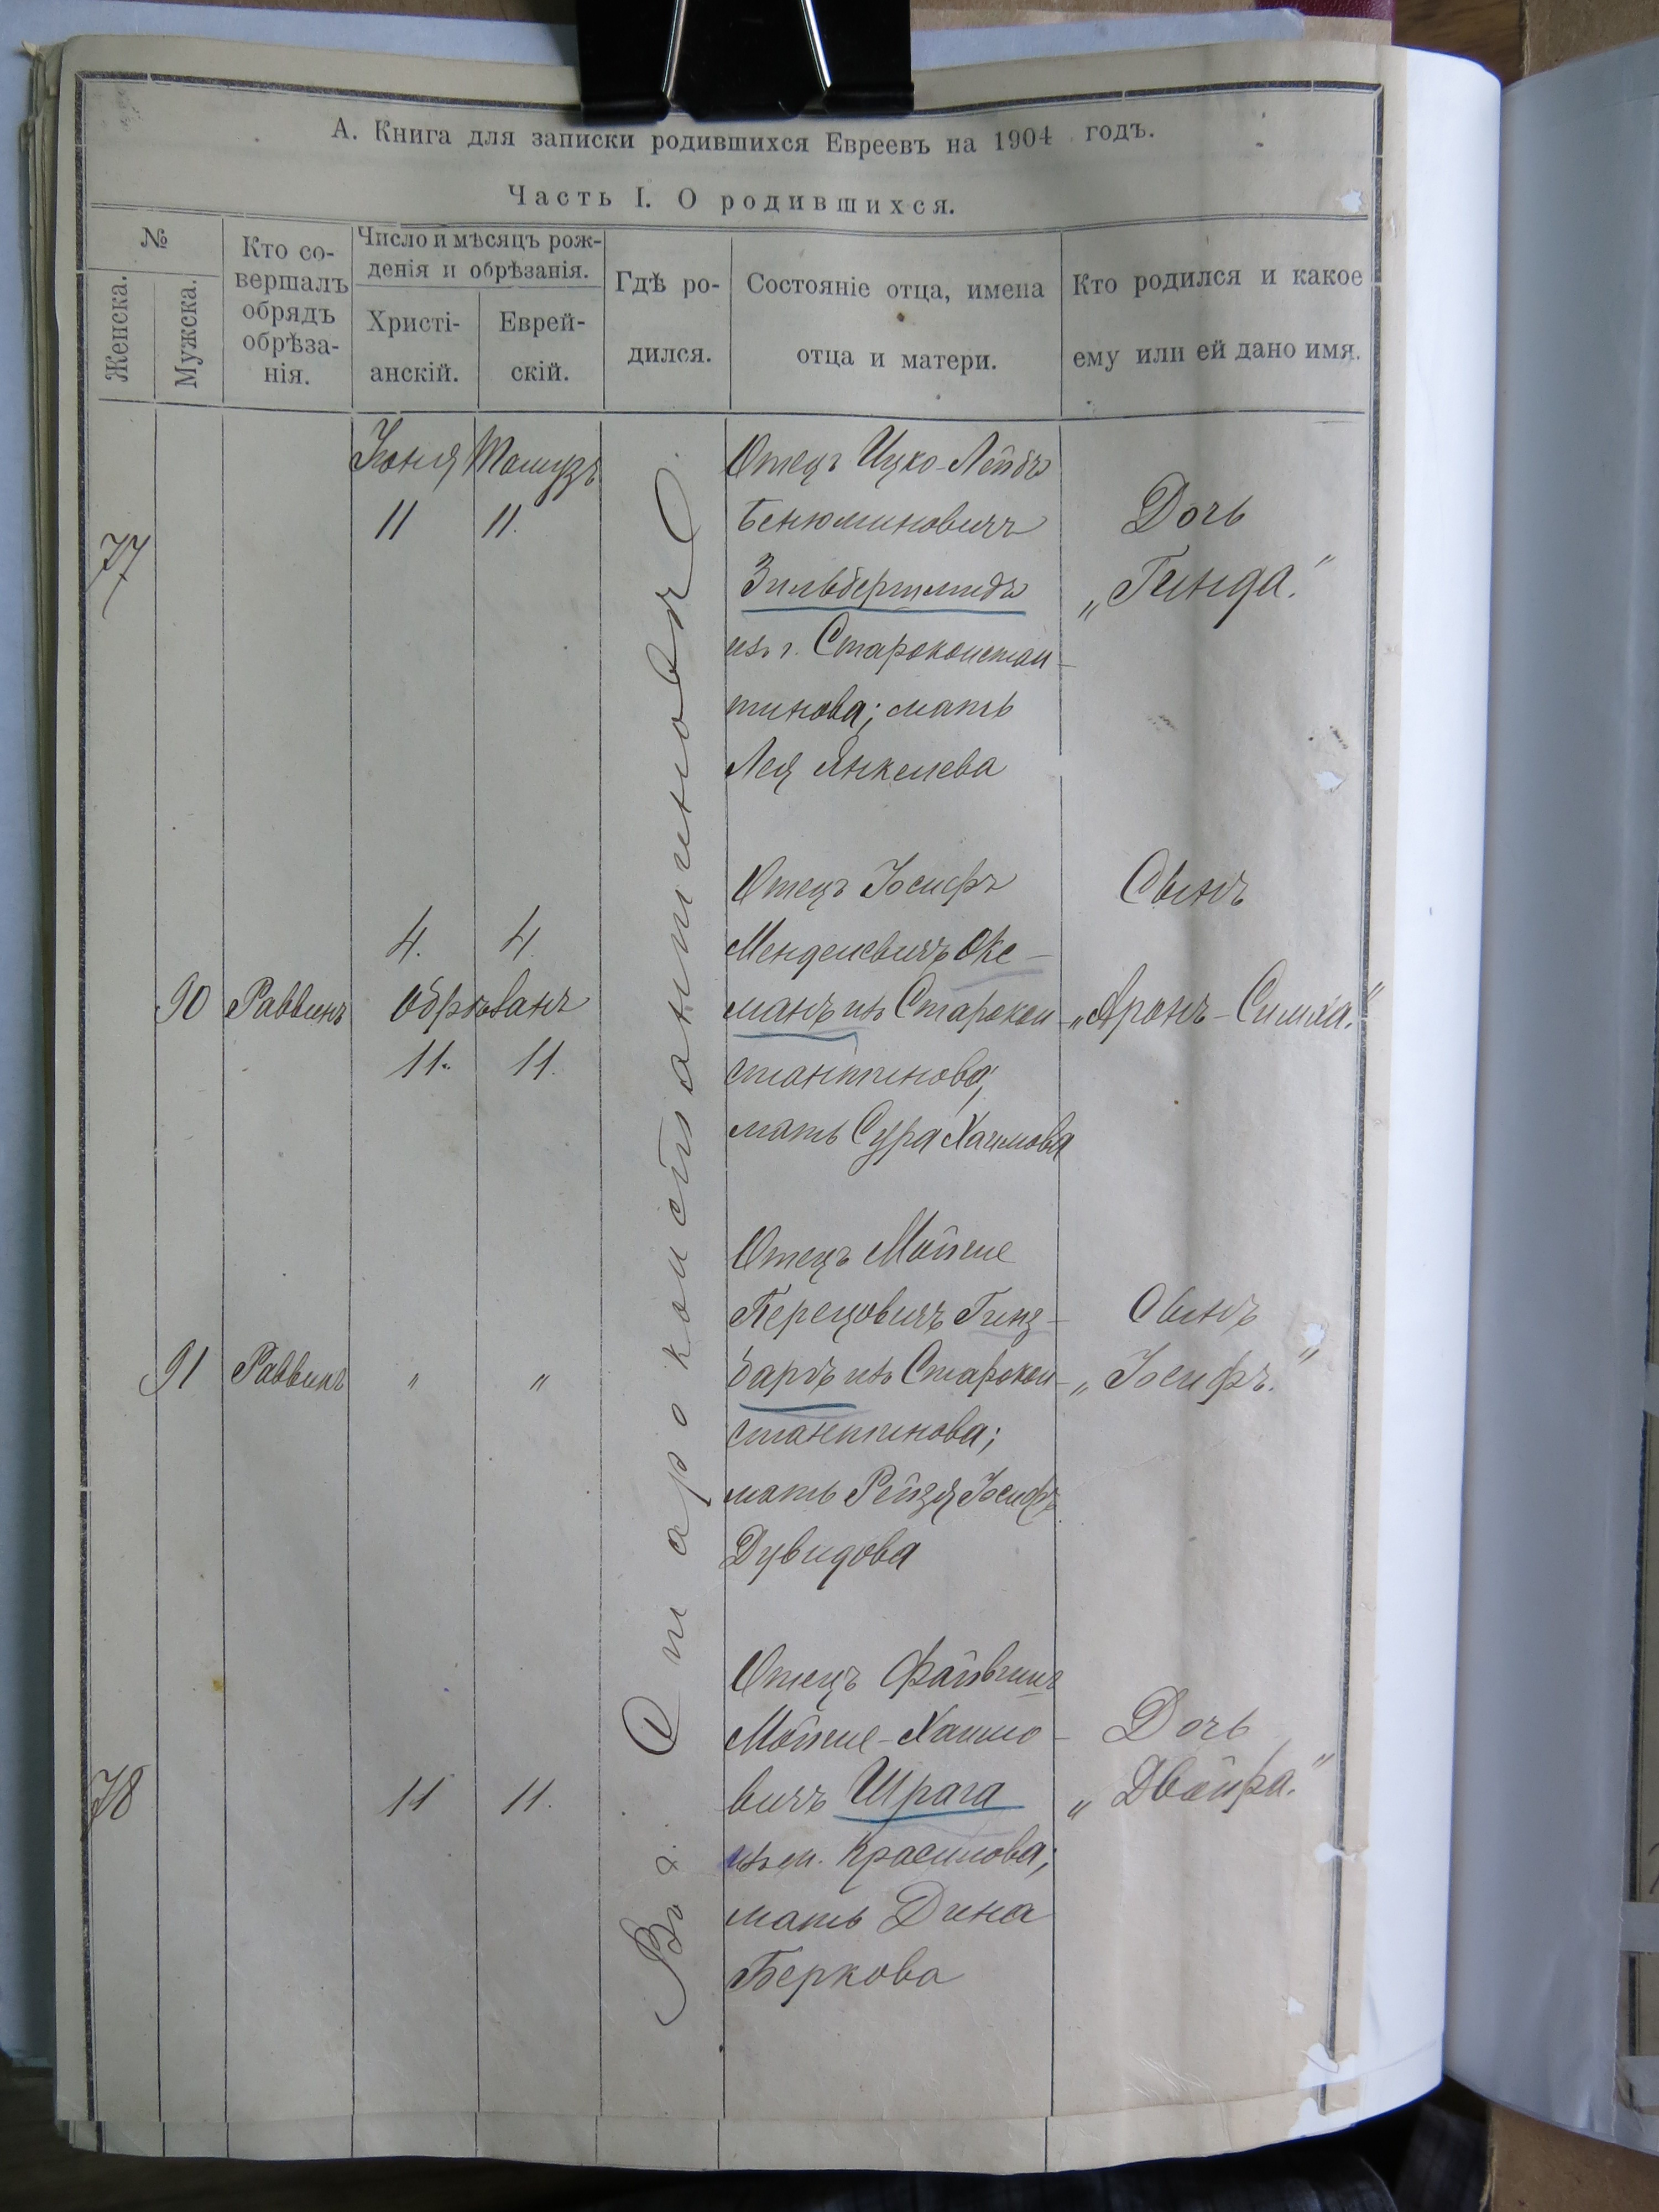 А. Книга для записки родившихся Евреевъ на 1904 годъ.
Часть I. О родившихся.
№
Женска.
Мужска.
Кто со-
вершалъ
обрядъ
обрѣза-
нія.
Число и мѣсяцъ рож-
денія и обрѣзанія.
Христі-
анскій.
Еврей-
скій.
Гдѣ ро-
дился.
Состояніе отца, имена
отца и матери.
Кто родился и какое
ему или ей дано имя.
Въ г. Староконстантиновѣ
77
Іюня Тамузъ
11 11.
Отецъ Ицко-Лейбъ
Бенюминовичъ
Зильбершмидъ
изъ г. Староконстан-
тинова; мать
Лея Янкелева
Дочь
„Гинда."
90 Раввинъ
4. 4.
Обрѣзанъ
11. 11.
Отецъ Іосифъ
Менделевичъ Окс-
манъ изъ Старокон-
стантинова;
мать Сура Хаимова
Сынъ
„Аронъ-Симха."
91 Раввинъ " "
Отецъ Мойше
Перецовичъ Гинз-
бургъ изъ Старокон-
стантинова;
мать Рейзя Іосифъ
Дувидова
Сынъ
„Іосифъ."
78
11 11.
Отецъ Файвишъ
Мойше-Хаимо-
вичъ Шрага
изъ м. Красилова;
мать Дина
Беркова
Дочь
„Двойра."